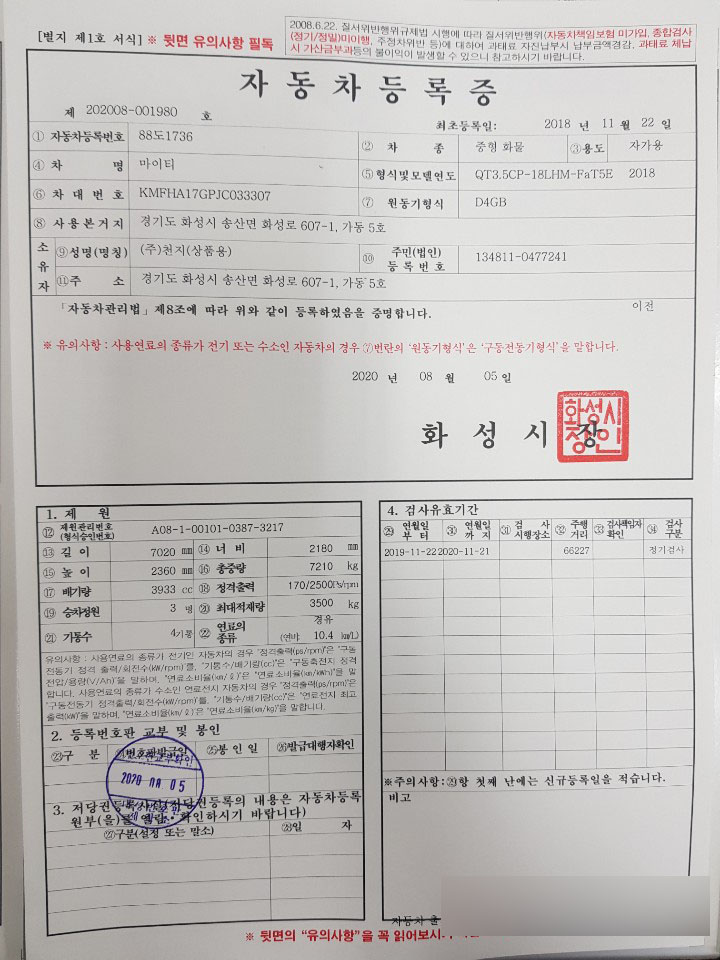 [별지 제1호 서식] ※ 뒷면 유의사항 필독
2008.6.22. 질서위반행위규제법 시행에 따라 질서위반행위(자동차책임보험 미가입, 종합검사
(정기/정밀)미이행, 주정차위반 등)에 대하여 과태료 자진납부시 납부금액경감, 과태료 체납
시 가산금부과등의 불이익이 발생할 수 있으니 참고하시기 바랍니다.
자동차등록증
제 202008-001980 호
최초등록일: 2018 년 11 월 22 일
① 자동차등록번호 88도1736 ② 차 종 중형 화물 ③용도 자가용
④ 차 명 마이티 ⑤ 형식및모델연도 QT3.5CP-18LHM-FaT5E 2018
⑥ 차 대 번 호 KMFHA17GPJC033307 ⑦ 원동기형식 D4GB
⑧ 사 용 본 거 지 경기도 화성시 송산면 화성로 607-1, 가동 5호
소유자 ⑨성명(명칭) (주)천지(상품용) ⑩ 주민(법인)등록번호 134811-0477241
⑪주 소 경기도 화성시 송산면 화성로 607-1, 가동 5호
「자동차관리법」제8조에 따라 위와 같이 등록하였음을 증명합니다. 이전
※ 유의사항 : 사용연료의 종류가 전기 또는 수소인 자동차의 경우 ⑦번란의 '원동기형식'은 '구동전동기형식'을 말합니다.
2020 년 08 월 05 일
화 성 시 장
화성시장인
1. 제 원
⑫ 제원관리번호(형식승인번호) A08-1-00101-0387-3217
⑬ 길 이 7020 mm ⑭ 너 비 2180 mm
⑮ 높 이 2360 mm ⑯ 총중량 7210 kg
⑰ 배기량 3933 cc ⑱ 정격출력 170/2500Ps/rpm
⑲ 승차정원 3 명 ⑳ 최대적재량 3500 kg
㉑ 기통수 4기통 ㉒ 연료의 종류 경유 (연비 10.4 km/L)
유의사항 : 사용연료의 종류가 전기인 자동차의 경우 "정격출력(ps/rpm)"은 "구동
전동기 정격 출력/회전수(kW/rpm)"를, "기통수/배기량(cc)"은 "구동축전지 정격
전압/용량(V/Ah)"을 말하며, "연료소비율(km/ℓ)은 "연료소비율(km/kWh)"을 말
합니다. 사용연료의 종류가 수소인 연료전지 자동차의 경우 "정격출력(ps/rpm)"은
"구동전동기 정격출력/회전수(kW/rpm)"를, "기통수/배기량(cc)"은 "연료전지 최고
출력(kW)"을 말하며, "연료소비율(km/ℓ)은 "연료소비율(km/kg)"을 말합니다.
2. 등록번호판 교부 및 봉인
㉓구 분 ㉔번호판발급일 ㉕봉인일 ㉖발급대행자확인
2020 08 05
3. 저당권등록사실(저당권등록의 내용은 자동차등록
원부(을)를 열람·확인하시기 바랍니다)
㉗구분(설정 또는 말소) ㉘일 자
4. 검사유효기간
㉙ 연월일부터 ㉚ 연월일까지 ㉛ 검사시행장소 ㉜ 주행거리 ㉝ 검사책임자확인 ㉞ 검사구분
2019-11-22 2020-11-21 66227 정기검사
※주의사항:㉙항 첫째 난에는 신규등록일을 적습니다.
비고
자동차 출
※ 뒷면의 "유의사항"을 꼭 읽어보시